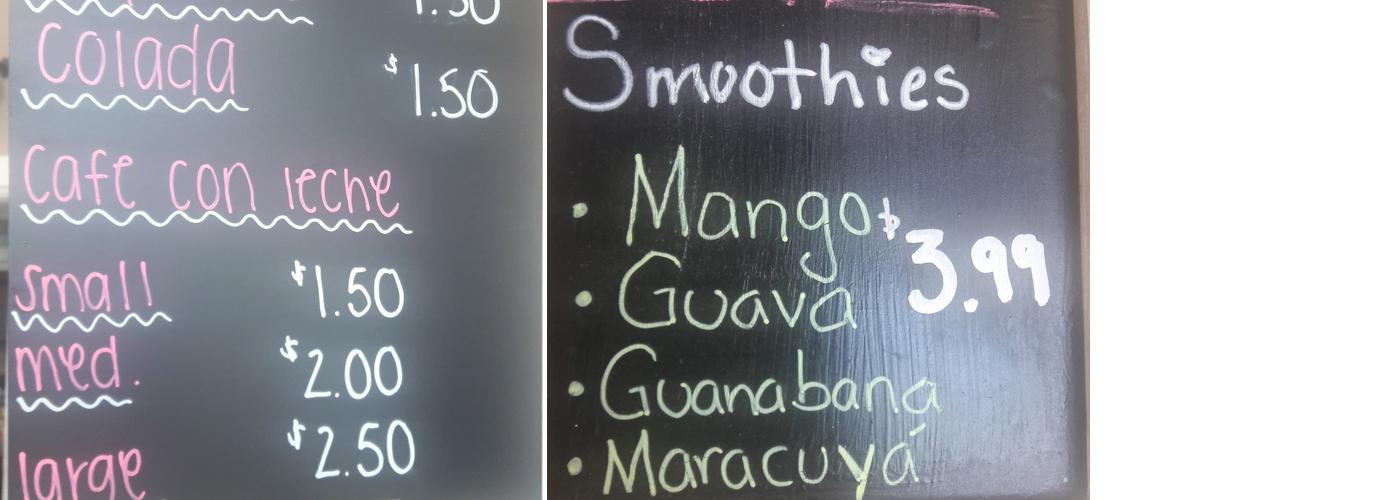 1.50
Colada $1.50
Cafe con leche
small $1.50
med. $2.00
large $2.50
Smoothies
• Mango
$3.99
• Guava
• Guanabana
• Maracuyá